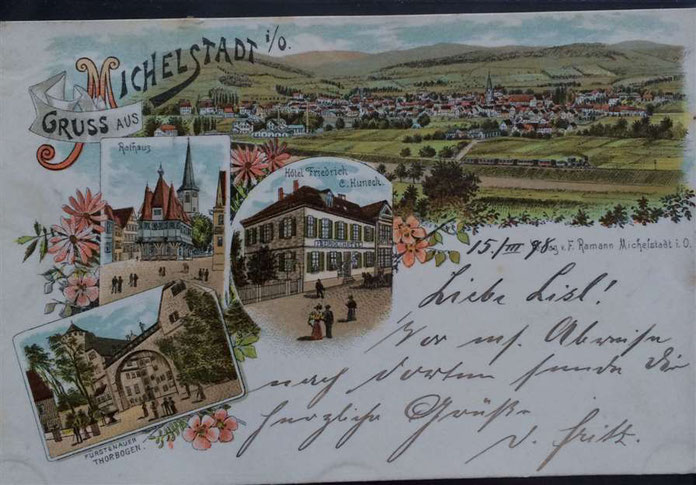 GRUSS AUS
MICHELSTADT i/O.
Rathaus
Hôtel Friedrich
C. Huneck.
FÜRSTENAUER
THORBOGEN.
v. F. Ramann Michelstadt i. O.
15./III 98.
Liebe Lisl!
Vor m. Abreise
nach dorten sende Dir
herzliche Grüße
d. Fritz.